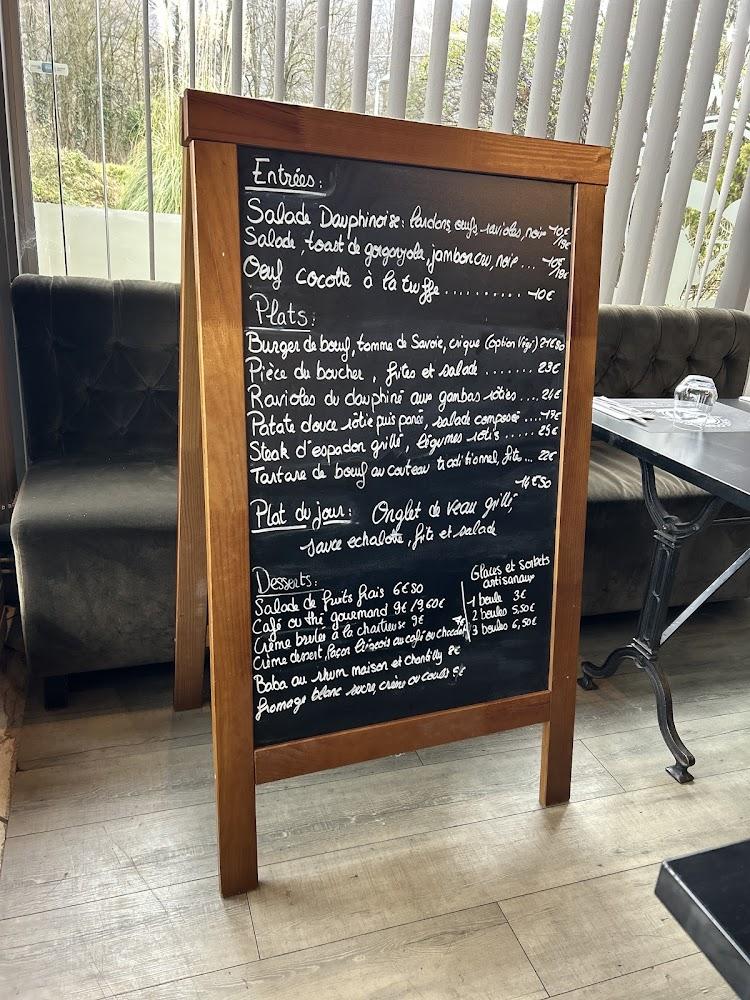 Entrées:
Salade Dauphinoise: lardons, oeufs, ravioles, noix 10€/18€
Salade, toast de gorgonzola, jambon cru, noix ... 10€/18€
Oeuf cocotte à la truffe .......... 10€
Plats:
Burger de boeuf, tomme de Savoie, crique (option Végé) 21€50
Pièce du boucher, frites et salade ........ 23€
Ravioles du dauphiné aux gambas rôties ... 24€
Patate douce rôtie puis panée, salade composée ....
Steak d'espadon grillé, légumes rôtis ..... 25€
Tartare de boeuf au couteau traditionnel, frite ... 22€
14€50
Plat du jour: Onglet de veau grillé,
sauce echalotte, frite et salade
Desserts:
Salade de fruits frais 6€50
Café ou thé gourmand 9€/9,60€
Crème brulée à la chartreuse 9€
Crème dessert, façon liégeois au café ou chocolat
Baba au rhum maison et chantilly 8€
fromage blanc sucre, crème ou coulis 5€
Glaces et Sorbets
artisanaux
1 boule 3€
2 boules 5,50€
3 boules 6,50€